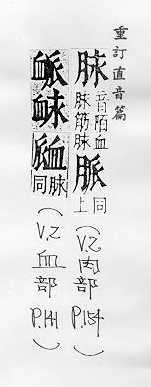 重訂直音篇
脉 音陌血脉筋脉 脈 同上 (V.2 肉部 P.154)
衇 䘑 𧖴 同脉 (V.2 血部 P.141)